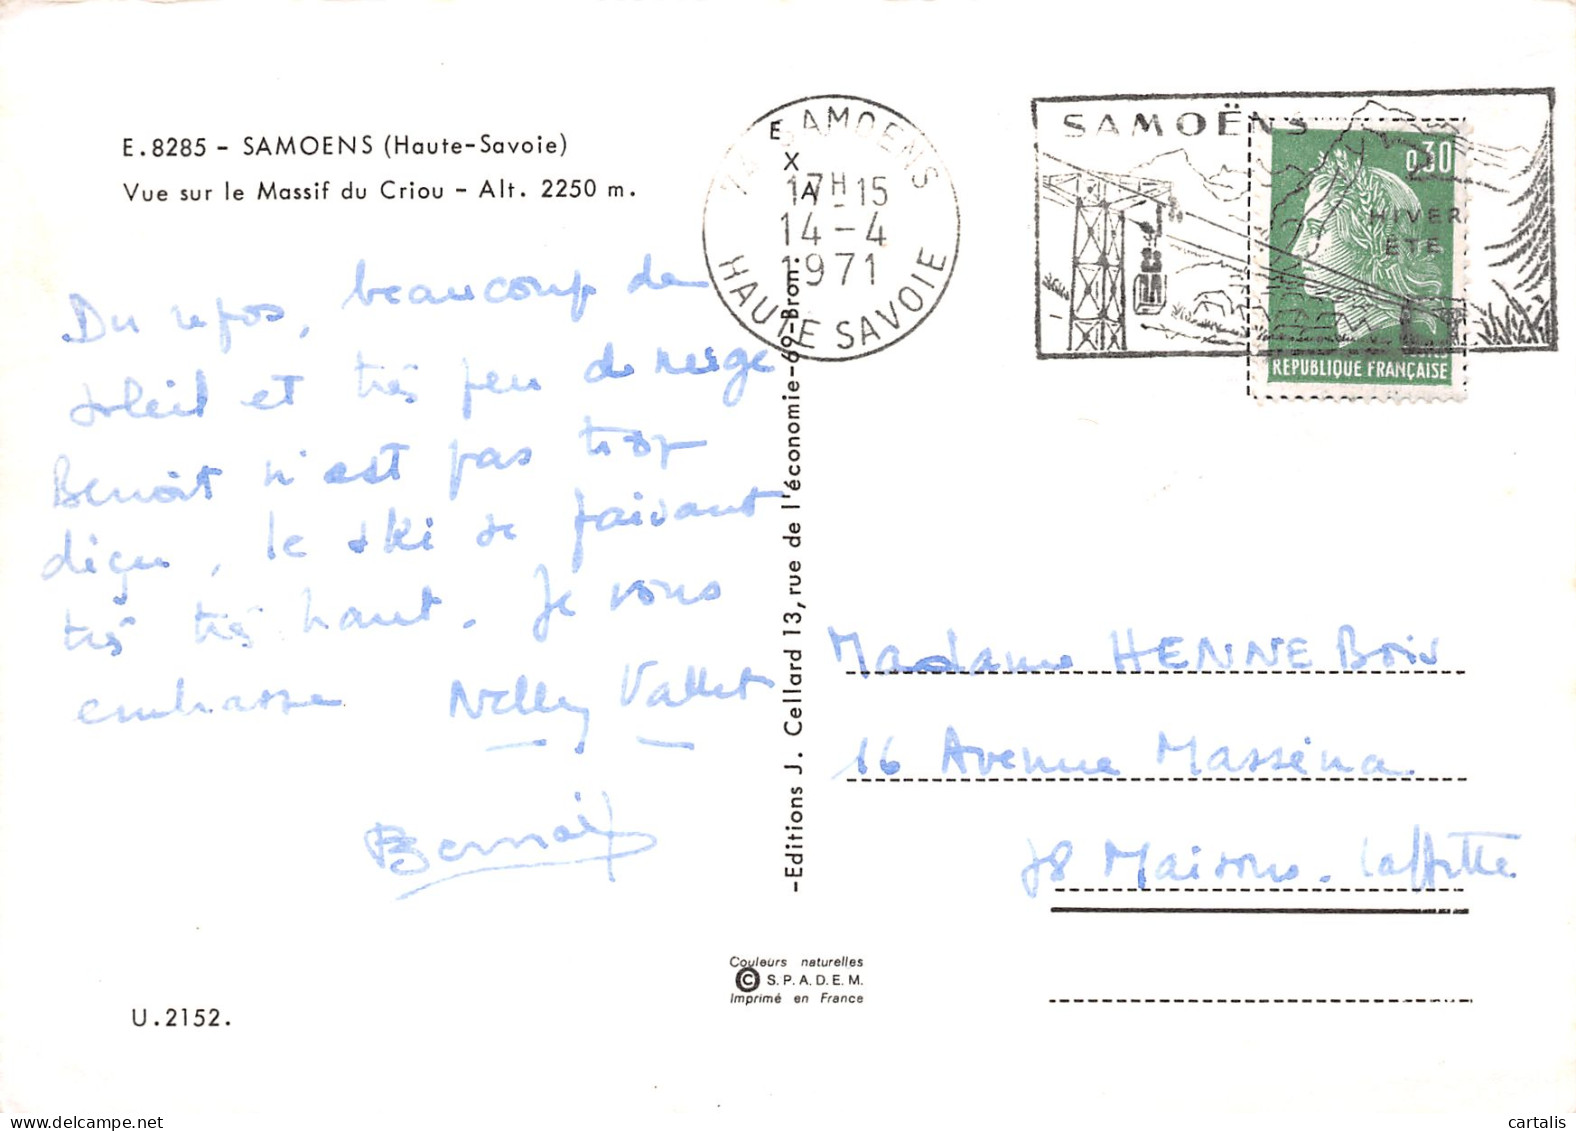 E.8285 - SAMOENS (Haute-Savoie)
Vue sur le Massif du Criou - Alt. 2250 m.
Du repos, beaucoup de
soleil et très peu de neige
Benoît n'est pas trop
déçu, le ski se faisant
très très haut. Je vous
embrasse Nelly Vallet
Benoit
U.2152.
74 SAMOENS
17H15
14-4
1971
HAUTE SAVOIE
EXA
-Editions J. Cellard 13, rue de l'économie-69-Bron.
Couleurs naturelles
© S.P.A.D.E.M.
Imprimé en France
SAMOËNS
HIVER
ETE
0,30
REPUBLIQUE FRANÇAISE
Madame HENNEBois
16 Avenue Masséna
78 Maisons-Laffitte
cartalis